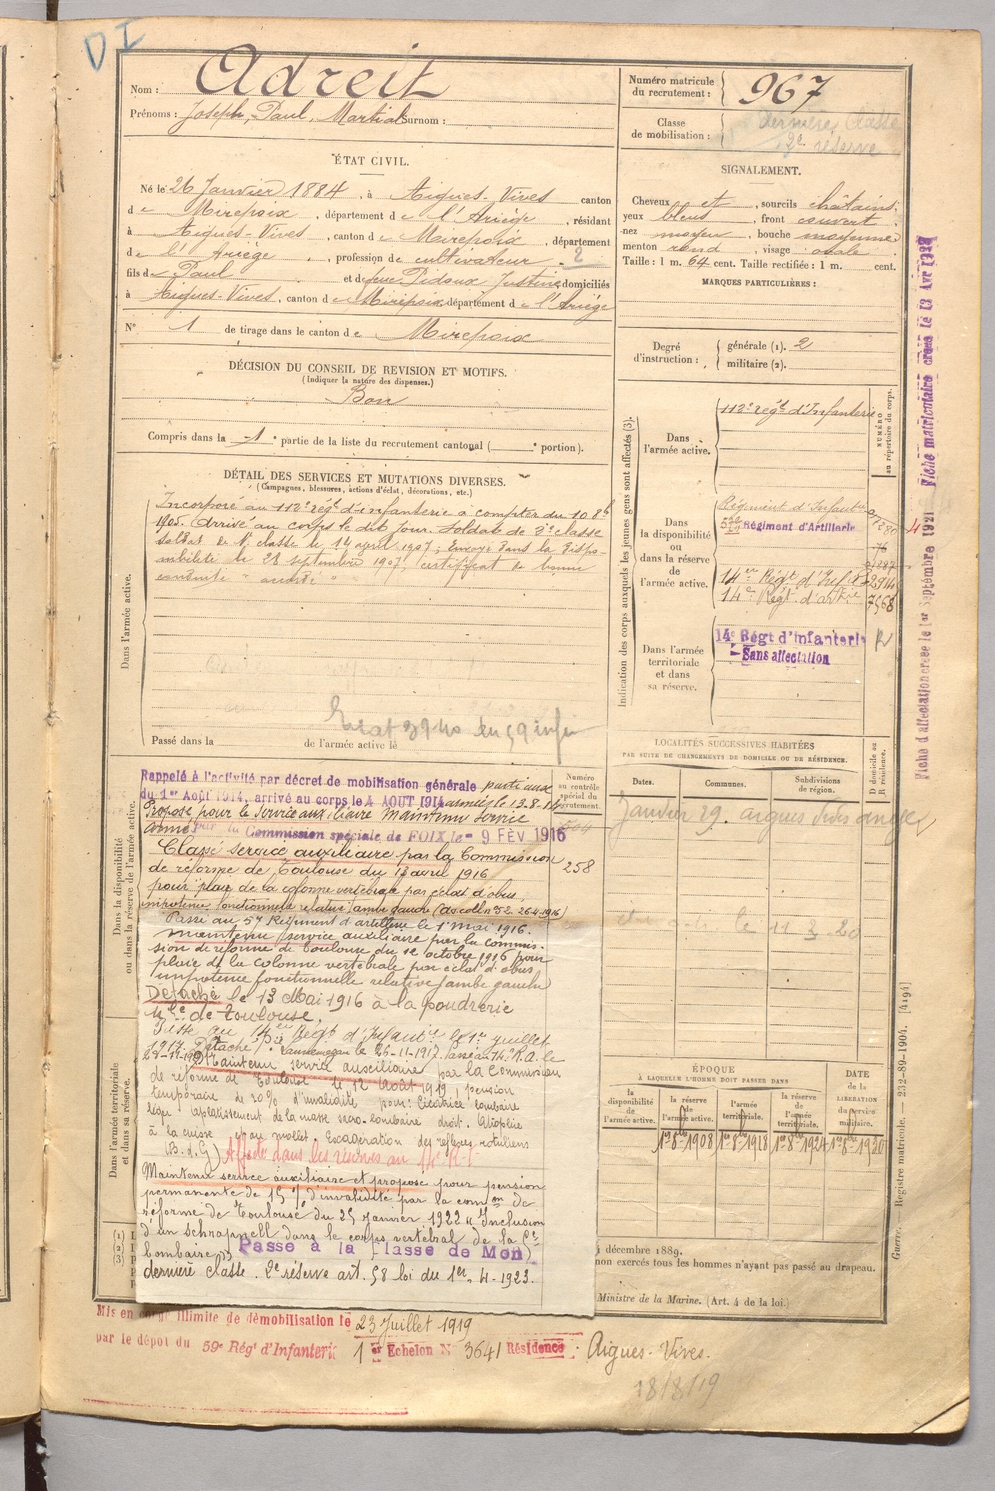 D I
Nom : Adreit
Prénoms : Joseph, Paul, Martial Surnom :
Numéro matricule du recrutement : 967
Classe de mobilisation : dernière Classe
2e réserve
ÉTAT CIVIL.
Né le 26 Janvier 1884, à Aigues-Vives canton
de Mirepoix, département de l'Ariège, résidant
à Aigues-Vives, canton de Mirepoix, département
de l'Ariège, profession de cultivateur 2
fils de Paul et de feue Pidoux Justine, domiciliés
à Aigues-Vives, canton de Mirepoix, département de l'Ariège
N° 1 de tirage dans le canton de Mirepoix
SIGNALEMENT.
Cheveux et, sourcils châtains;
yeux bleus, front couvert
nez moyen, bouche moyenne
menton rond, visage ovale
Taille : 1 m. 64 cent. Taille rectifiée : 1 m. cent.
MARQUES PARTICULIÈRES :
Degré d'instruction : générale (1). 2
militaire (2).
DÉCISION DU CONSEIL DE REVISION ET MOTIFS.
(Indiquer la nature des dispenses.)
Bon
Compris dans la 1e partie de la liste du recrutement cantonal ( e portion).
DÉTAIL DES SERVICES ET MUTATIONS DIVERSES.
(Campagnes, blessures, actions d'éclat, décorations, etc.)
Dans l'armée active.
Incorporé au 112e rég.t d'infanterie à compter du 10 8bre
1905. Arrivé au corps le dit jour. Soldat de 2e classe
soldat de 1e classe le 14 avril 1907; Envoyé dans la dispo-
nibilité le 28 septembre 1907; certificat de bonne
conduite "accordé"
Passé dans la de l'armée active le
Indication des corps auxquels les jeunes gens sont affectés (3).
NUMÉRO au répertoire du corps.
Dans l'armée active.
112e rég.t d'Infanterie
Dans la disponibilité ou dans la réserve de l'armée active.
Régiment d'Infanterie
Régiment d'Artillerie
14e Régt d'Infie 2940
14e Régt d'artie 7568
Dans l'armée territoriale et dans sa réserve.
14e Régt d'Infanterie
Sans affectation
R
Fiche d'affectation créée le 1er Septembre 1921
Fiche matriculaire créée le
LOCALITÉS SUCCESSIVES HABITÉES
PAR SUITE DE CHANGEMENTS DE DOMICILE OU DE RÉSIDENCE.
Dates. Communes. Subdivisions de région. D domicile ou R résidence.
Janvier 29. aigues vives
Dans la disponibilité ou dans la réserve de l'armée active.
Numéro au contrôle spécial du recrutement.
258
Rappelé à l'activité par décret de mobilisation générale parti aux
du 1er Août 1914, arrivé au corps le 4 AOUT 1914 armées le 13.8.14
Proposé pour le service auxiliaire maintenu service
armé par la Commission spéciale de FOIX, le 9 FÉV 1916
Classé service auxiliaire par la Commission
de réforme de Toulouse du 13 avril 1916
pour plaie de la colonne vertébrale par éclat d'obus
impotence fonctionnelle relative jambe gauche
Passé au 57 Régiment d'artillerie le 1er mai 1916.
Maintenu service auxiliaire par la commis-
sion de réforme de Toulouse du 12 octobre 1916 pour
plaie de la colonne vertébrale par éclat d'obus
impotence fonctionnelle relative jambe gauche
Détaché le 13 Mai 1916 à la poudrerie
Nle de Toulouse.
Passé au 14e Régt d'Infantie le 1er juillet
1917. Détaché Lannemezan le 26-11-1917. Passé au 14e R.A. le
Maintenu service auxiliaire par la Commission
de réforme de Toulouse le 12 Août 1919, pension
temporaire de 20% d'invalidité pour: cicatrice lombaire
léger aplatissement de la masse sacro-lombaire droit. Atrophie
à la cuisse et au mollet. Exagération des réflexes rotuliens
Affecté dans les réserves au 14e R.I.
Dans l'armée territoriale et dans sa réserve.
Maintenu service auxiliaire et proposé pour pension
permanente de 15% d'invalidité par la comon de
réforme de Toulouse du 25 janvier 1922 "Inclusion
d'un schrapnell dans le corps vertébral de la
lombaire" Passé à la Classe de Mon
dernière classe. 2e réserve art. 58 loi du 1er-4-1923.
ÉPOQUE
À LAQUELLE L'HOMME DOIT PASSER DANS
la disponibilité de l'armée active. la réserve de l'armée active. l'armée territoriale. la réserve de l'armée territoriale.
DATE de la LIBÉRATION du service militaire.
1er 8bre 1908 1er 8bre 1918 1er 8bre 1924 1er 8bre 1930
(1)
(2)
(3)
décembre 1889.
non exercés tous les hommes n'ayant pas passé au drapeau.
Ministre de la Marine. (Art. 4 de la loi.)
Guerre. — Registre matricule. — 232-89-1904. [4194]
Mis en congé illimité de démobilisation le 23 Juillet 1919
par le dépôt du 59e Régt d'Infanterie 1er Echelon N° 3641 Résidence : Aigues-Vives.
18/8/19